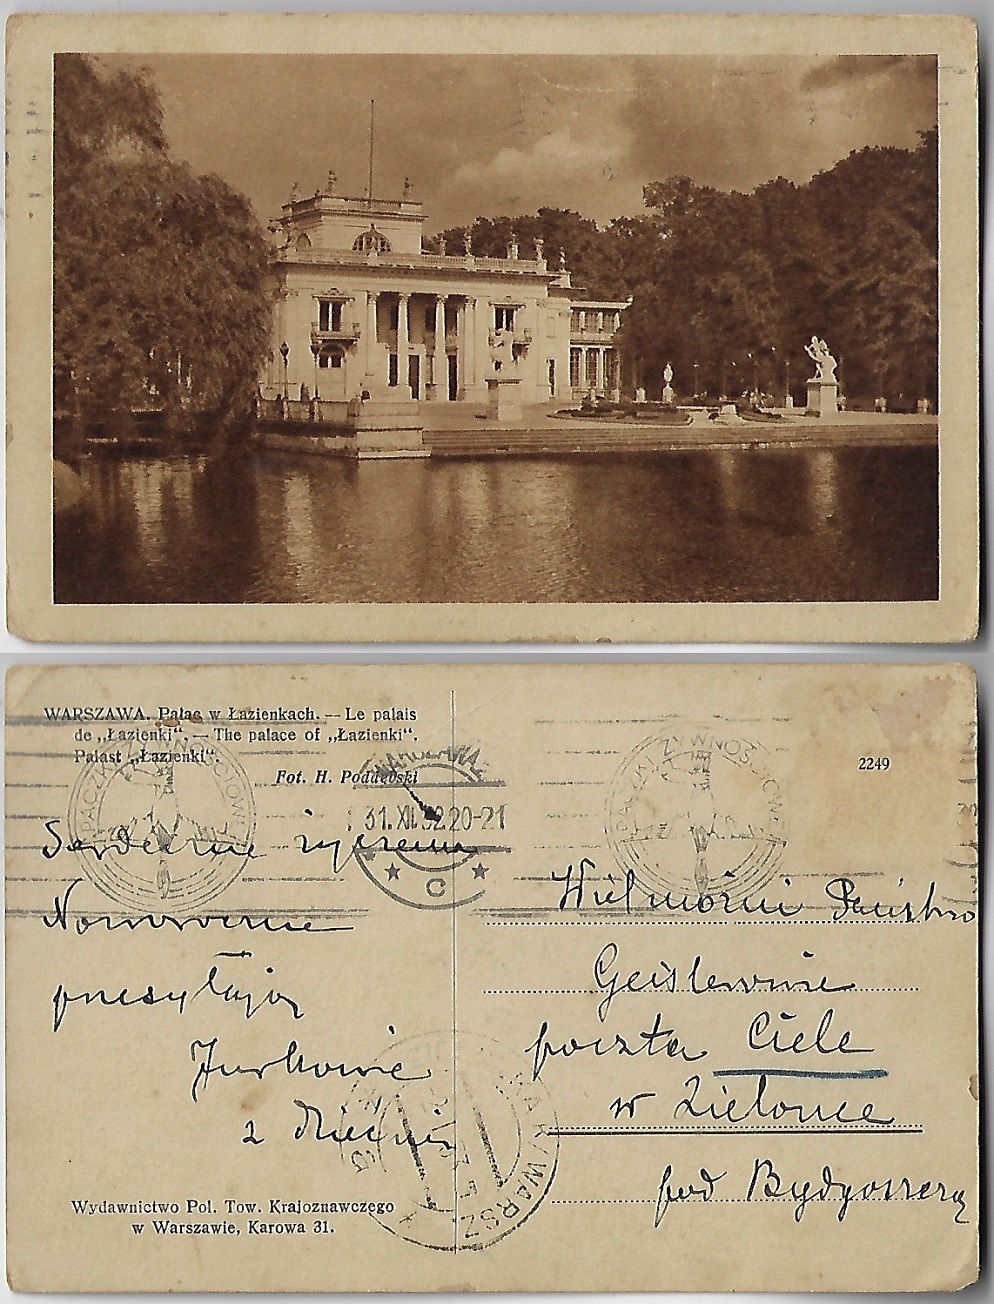 WARSZAWA. Pałac w Łazienkach. — Le palais
de „Łazienki". — The palace of „Łazienki".
Palast „Łazienki".
Fot. H. Poddębski
2249
PACZKI ŻYWNOŚCIOWE
WARSZAWA
31.XII.32.20-21
C
PACZKI ŻYWNOŚCIOWE
Serdeczne życzenia
Noworoczne
przesyłają
Jurkowie
z dziećmi
Wielmożni Państwo
Geislerowie
poczta Ciele
w Zielonce
pod Bydgoszczą
WARSZ
Wydawnictwo Pol. Tow. Krajoznawczego
w Warszawie, Karowa 31.